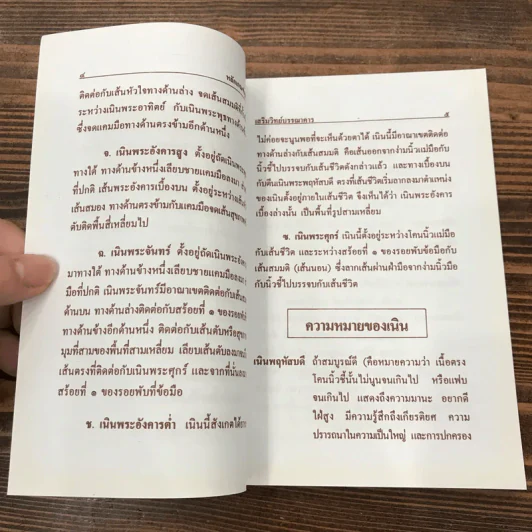 ๔
ติดต่อกับเส้นหัวใจทางด้านล่าง จดเส้นสมมติ
ระหว่างเนินพระอาทิตย์ กับเนินพระพุธทางด้าน
ซึ่งจดแคมมือทางด้านตรงข้ามอีกด้านหนึ่ง
จ. เนินพระอังคารสูง ตั้งอยู่ถัดเนินพระ
ทางใต้ ทางด้านข้างหนึ่งเลียบชายแคมมือลงมา
ที่ปกติ เส้นพระอังคารเบื้องบน ตั้งอยู่ระหว่าง
เส้นสมอง ทางด้านตรงข้ามกับแคมมือจดเส้น
ดับติดพื้นสี่เหลี่ยมไป
ฉ. เนินพระจันทร์ ตั้งอยู่ถัดเนินพระ
มาทางใต้ ทางด้านข้างหนึ่งเลียบชายแคมมือลง
มือที่ปกติ เนินพระจันทร์มีอาณาเขตติดต่อกับเส้น
ด้านบน ทางด้านล่างติดต่อกับสร้อยที่ ๑ ของรอยพับ
ทางด้านข้างอีกด้านหนึ่ง ติดต่อกับเส้นดับหรือ
มุมที่สามของพื้นที่สามเหลี่ยม เลียบเส้นดับลงมา
เส้นตรงที่ติดต่อกับเนินพระศุกร์ และจากที่นั่น
สร้อยที่ ๑ ของรอยพับที่ข้อมือ
ช. เนินพระอังคารต่ำ เนินนี้สังเกตได้
เสริมวิทย์บรรณาคาร ๕
ไม่ค่อยจะนูนพอที่จะเห็นด้วยตาได้ เนินนี้มีอาณาเขตติดต่อ
ทางด้านล่างกับเส้นสมมติ คือเส้นออกจากง่ามนิ้วแม่มือกับ
นิ้วชี้ไปบรรจบกับเส้นชีวิตดังกล่าวแล้ว และทางเบื้องบน
กับตีนเนินพระพฤหัสบดี ตรงที่เส้นชีวิตเริ่มลากลงมาตำแหน่ง
ของเนินตั้งอยู่ภายในเส้นชีวิต จึงเห็นได้ว่า เนินพระอังคาร
เบื้องล่างนั้น เป็นพื้นที่รูปสามเหลี่ยม
ซ. เนินพระศุกร์ เนินนี้ตั้งอยู่ระหว่างโคนนิ้วแม่มือ
กับเส้นชีวิต และระหว่างสร้อยที่ ๑ ของรอยพับข้อมือกับ
เส้นสมมติ (เส้นนอน) ซึ่งลากเส้นผ่านฝ่ามือจากง่ามนิ้วมือ
กับนิ้วชี้ไปบรรจบกับเส้นชีวิต
ความหมายของเนิน
เนินพฤหัสบดี ถ้าสมบูรณ์ดี (คือหมายความว่า เนื้อตรง
โคนนิ้วชี้นั้นไม่นูนจนเกินไป หรือแฟบ
จนเกินไป แสดงถึงความมานะ อยากดี
ใฝ่สูง มีความรู้สึกถึงเกียรติยศ ความ
ปรารถนาในความเป็นใหญ่ และการปกครอง